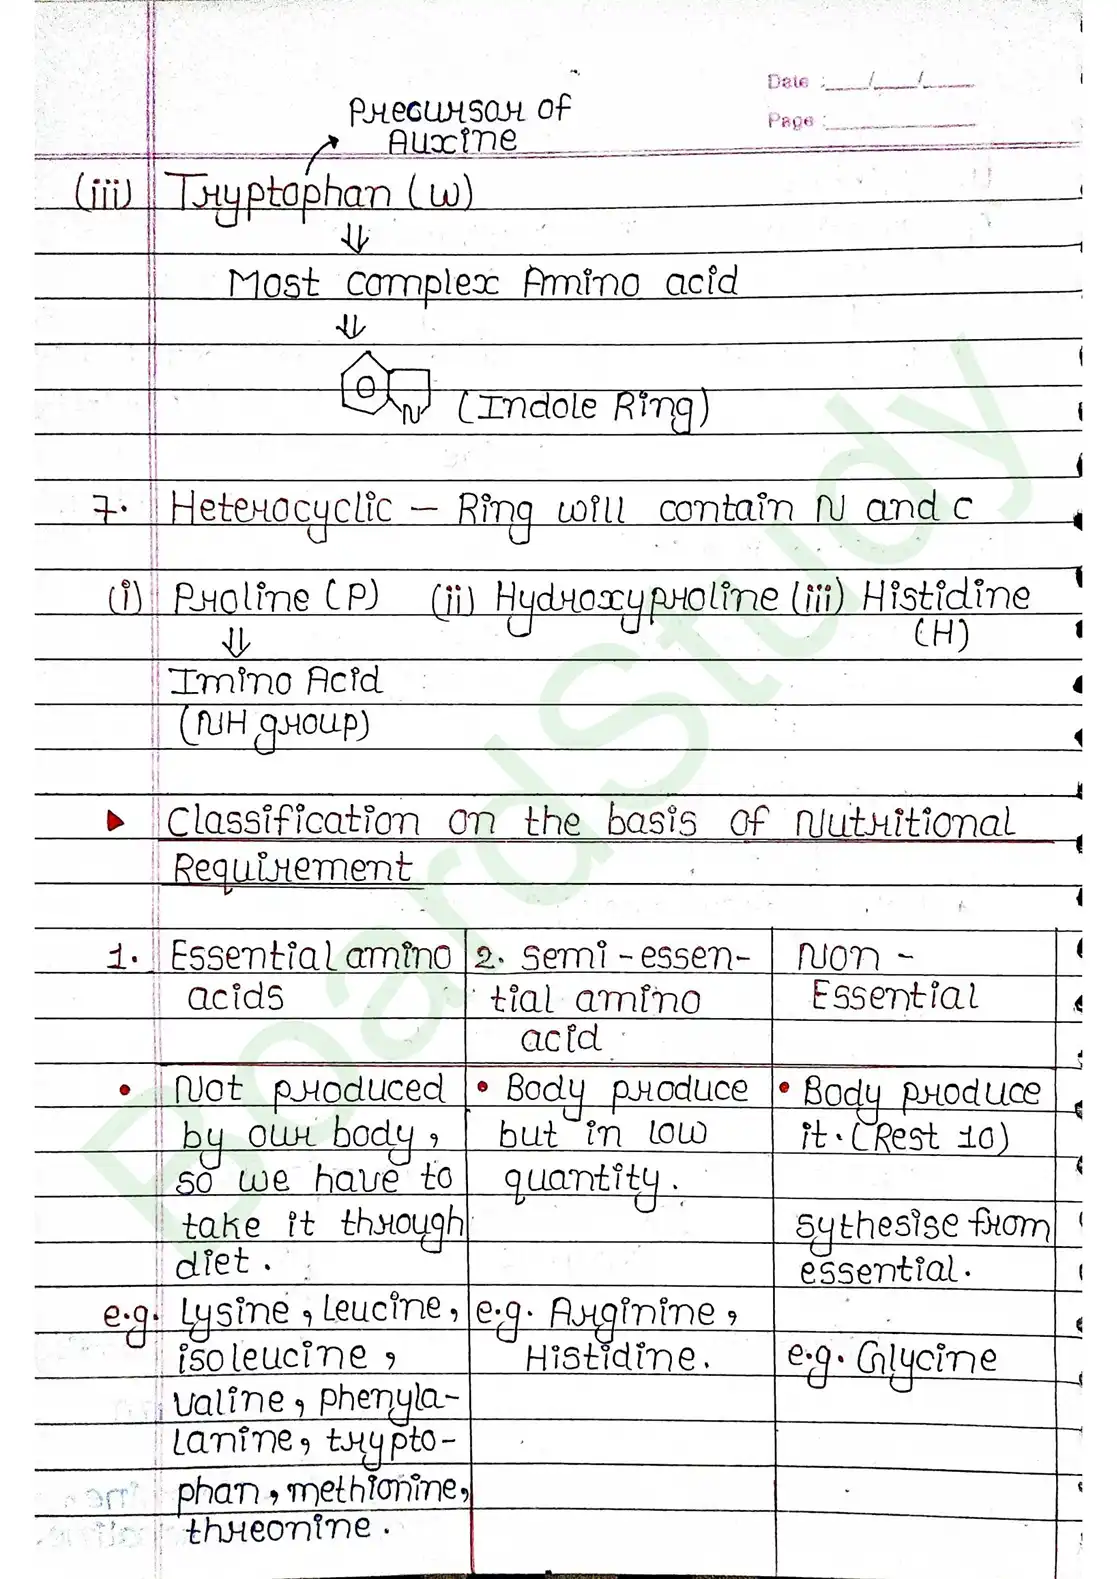 Date :___/___/___
Page :
Precursor of
Auxine
(iii) Tryptophan (W)
⇓
Most complex Amino acid
⇓
N (Indole Ring)
7. Heterocyclic – Ring will contain N and C
(i) Proline (P) (ii) Hydroxyproline (iii) Histidine
(H)
⇓
Imino Acid
(NH group)
▶ Classification on the basis of Nutritional
Requirement
1. Essential amino
acids
2. Semi-essen-
tial amino
acid
Non-
Essential
• Not produced
by our body,
so we have to
take it through
diet.
e.g. Lysine, Leucine,
isoleucine,
valine, phenyla-
lanine, trypto-
phan, methionine,
threonine.
• Body produce
but in low
quantity.
e.g. Arginine,
Histidine.
• Body produce
it. (Rest 10)
sythesise from
essential.
e.g. Glycine
BoardStudy